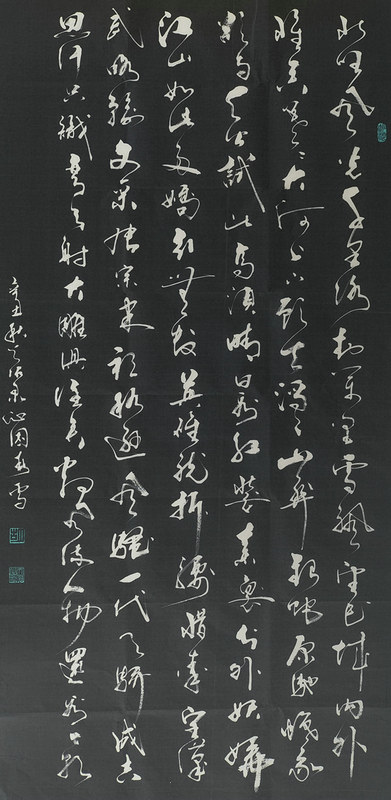 北国风光千里冰封萬里雪飄望長城内外
惟余莽莽大河上下顿失滔滔山舞銀蛇原馳蠟象
欲与天公試比高須晴日看红装素裹分外妖嬈
江山如此多嬌引無數英雄競折腰惜秦皇漢
武略輸文采唐宗宋祖稍逊风騷一代天驕成吉
思汗只識彎弓射大雕俱往矣数风流人物還看今朝
辛丑秋毛泽东沁园春雪